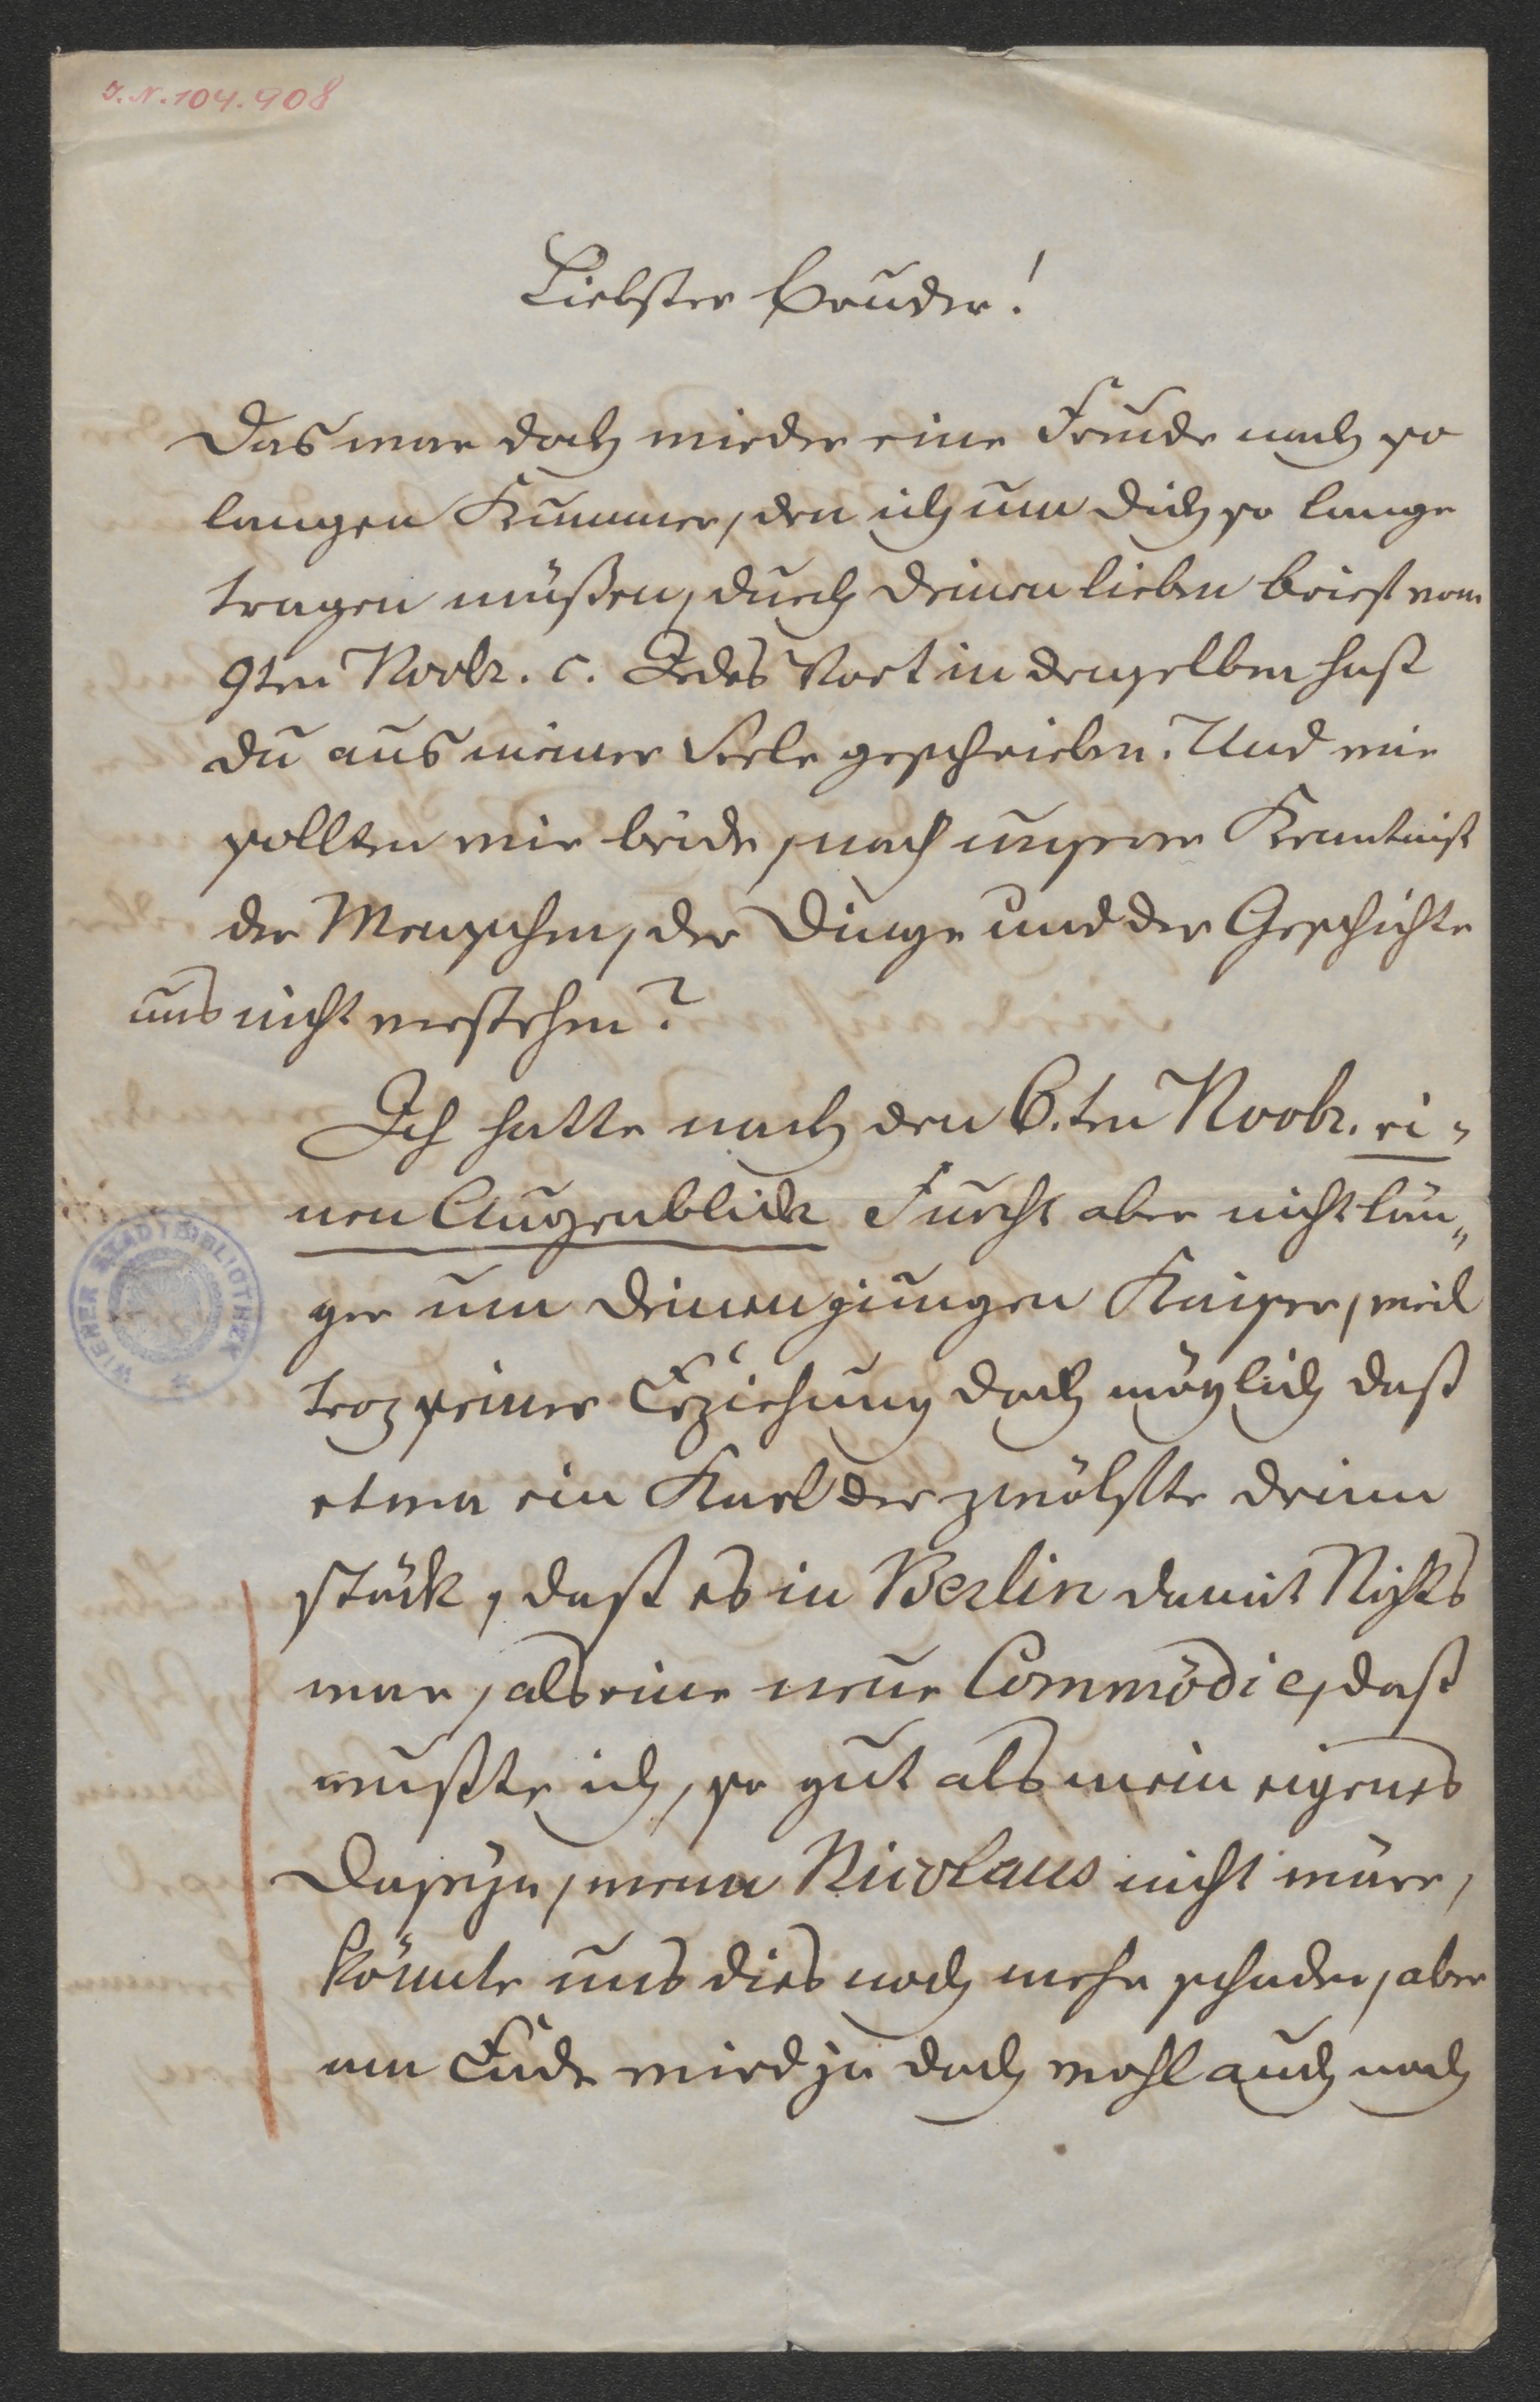 I.N. 104.908
Liebster Bruder!
Das war doch wieder eine Freude nach so
langen Kummer, den ich um Dich so lange
tragen müßen, durch Deinen lieben Brief vom
9ten Novbr. c. Jedes Wort in demselben hast
Du aus meiner Seele geschrieben. Und wie
sollten wir beide, nach unserer Kenntniß
der Menschen, der Dinge und der Geschichte
uns nicht verstehen?
Ich hatte nach den 6.ten Novbr. ei-
nen Augenblick Furcht aber nicht län„
ger um Deinen jungen Kaiser, weil
troz seiner Erziehung doch möglich daß
etwa ein Karl der zwölfte drinn
stäck, daß es in Berlin damit Nichts
war, als eine neue Commödie, daß
wußte ich, so gut als mein eigenes
Daseyn, wenn Nicolaus nicht wäre,
könnte uns dies noch mehr schaden, aber
am Ende wird ja doch wohl auch noch
WIENER STADTBIBLIOTHEK